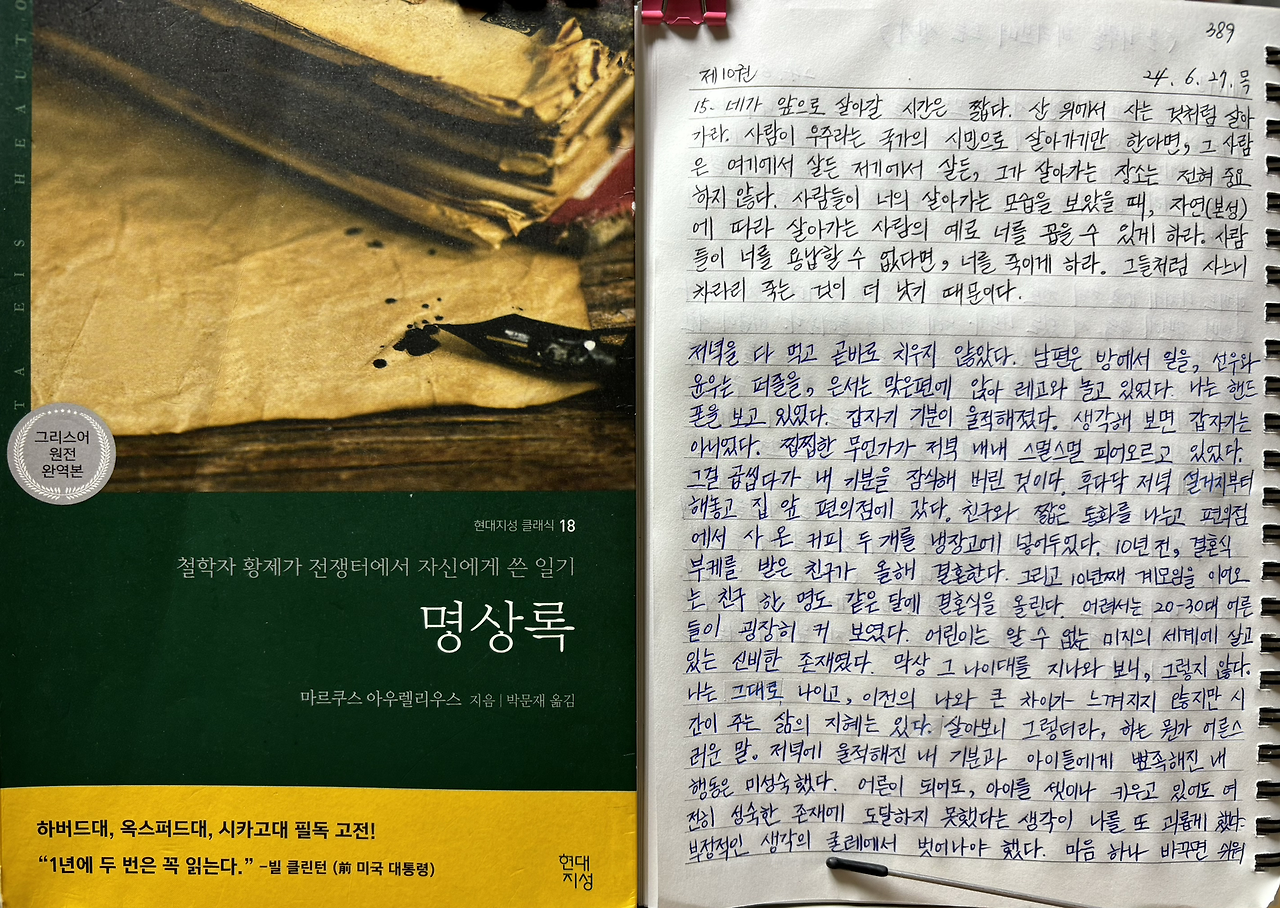 TATEISHEAUT.O
그리스어
원전
완역본
현대지성 클래식 18
철학자 황제가 전쟁터에서 자신에게 쓴 일기
명상록
마르쿠스 아우렐리우스 지음 | 박문재 옮김
하버드대, 옥스퍼드대, 시카고대 필독 고전!
“1년에 두 번은 꼭 읽는다.” –빌 클린턴 (前 미국 대통령)
현대
지성
389
제10권
24. 6. 27. 목
15. 네가 앞으로 살아갈 시간은 짧다. 산 위에서 사는 것처럼 살아
가라. 사람이 우주라는 국가의 시민으로 살아가기만 한다면, 그 사람
은 여기에서 살든 저기에서 살든, 그가 살아가는 장소는 전혀 중요
하지 않다. 사람들이 너의 살아가는 모습을 보았을 때, 자연(본성)
에 따라 살아가는 사람의 예로 너를 꼽을 수 있게 하라. 사람
들이 너를 용납할 수 없다면, 너를 죽이게 하라. 그들처럼 사느니
차라리 죽는 것이 더 낫기 때문이다.
저녁을 다 먹고 곧바로 치우지 않았다. 남편은 방에서 일을, 선우와
윤우는 퍼즐을, 은서는 맞은편에 앉아 레고와 놀고 있었다. 나는 핸드
폰을 보고 있었다. 갑자기 기분이 울적해졌다. 생각해 보면 갑자기는
아니었다. 찝찝한 무언가가 저녁 내내 스멀스멀 피어오르고 있었다.
그걸 곱씹다가 내 기분을 잠식해 버린 것이다. 후다닥 저녁 설거지부터
해놓고 집 앞 편의점에 갔다. 친구와 짧은 통화를 나누고 편의점
에서 사 온 커피 두 개를 냉장고에 넣어두었다. 10년 전, 결혼식
부케를 받은 친구가 올해 결혼한다. 그리고 10년째 계모임을 이어오
는 친구 한 명도 같은 달에 결혼식을 올린다. 어려서는 20-30대 어른
들이 굉장히 커 보였다. 어린이는 알 수 없는 미지의 세계에 살고
있는 신비한 존재였다. 막상 그 나이대를 지나와 보니, 그렇지 않다.
나는 그대로 나이고, 이전의 나와 큰 차이가 느껴지지 않지만 시
간이 주는 삶의 지혜는 있다. 살아보니 그렇더라, 하는 뭔가 어른스
러운 말. 저녁에 울적해진 내 기분과 아이들에게 뾰족해진 내
행동은 미성숙했다. 어른이 되어도, 아이를 셋이나 키우고 있어도 여
전히 성숙한 존재에 도달하지 못했다는 생각이 나를 또 괴롭게 했다.
부정적인 생각의 굴레에서 벗어나야 했다. 마음 하나 바꾸면 쉬워